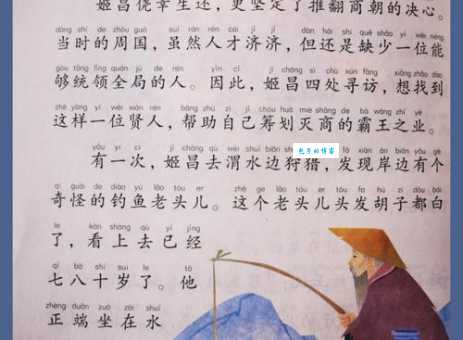 姬昌侥幸生还，更坚定了推翻商朝的决心。
dāng shí de zhōu guó suī rán rén cái jǐ jǐ dàn hái shi quē shǎo yí wèi néng
当时的周国，虽然人才济济，但还是缺少一位能
gòu tǒng lǐng quán jú de rén yīn cǐ jī chāng sì chù xún fǎng xiǎng zhǎo dào
够统领全局的人。因此，姬昌四处寻访，想找到
zhè yàng yí wèi xián rén bāng zhù zì jǐ chóu huà miè shāng de bà wáng zhī yè
这样一位贤人，帮助自己筹划灭商的霸王之业。
yǒu yí cì jī chāng qù wèi shuǐ biān shòu liè fā xiàn àn biān yǒu gè
有一次，姬昌去渭水边狩猎，发现岸边有个
qí guài de diào yú lǎo tóu er zhè ge lǎo tóu er tóu fa hú zi dōu bái
奇怪的钓鱼老头儿。这个老头儿头发胡子都白
le kàn shàng qù yǐ jīng
了，看上去已经
qī bā shí suì le tā
七八十岁了。他
zhèng duān zuò zài shuǐ
正端坐在水